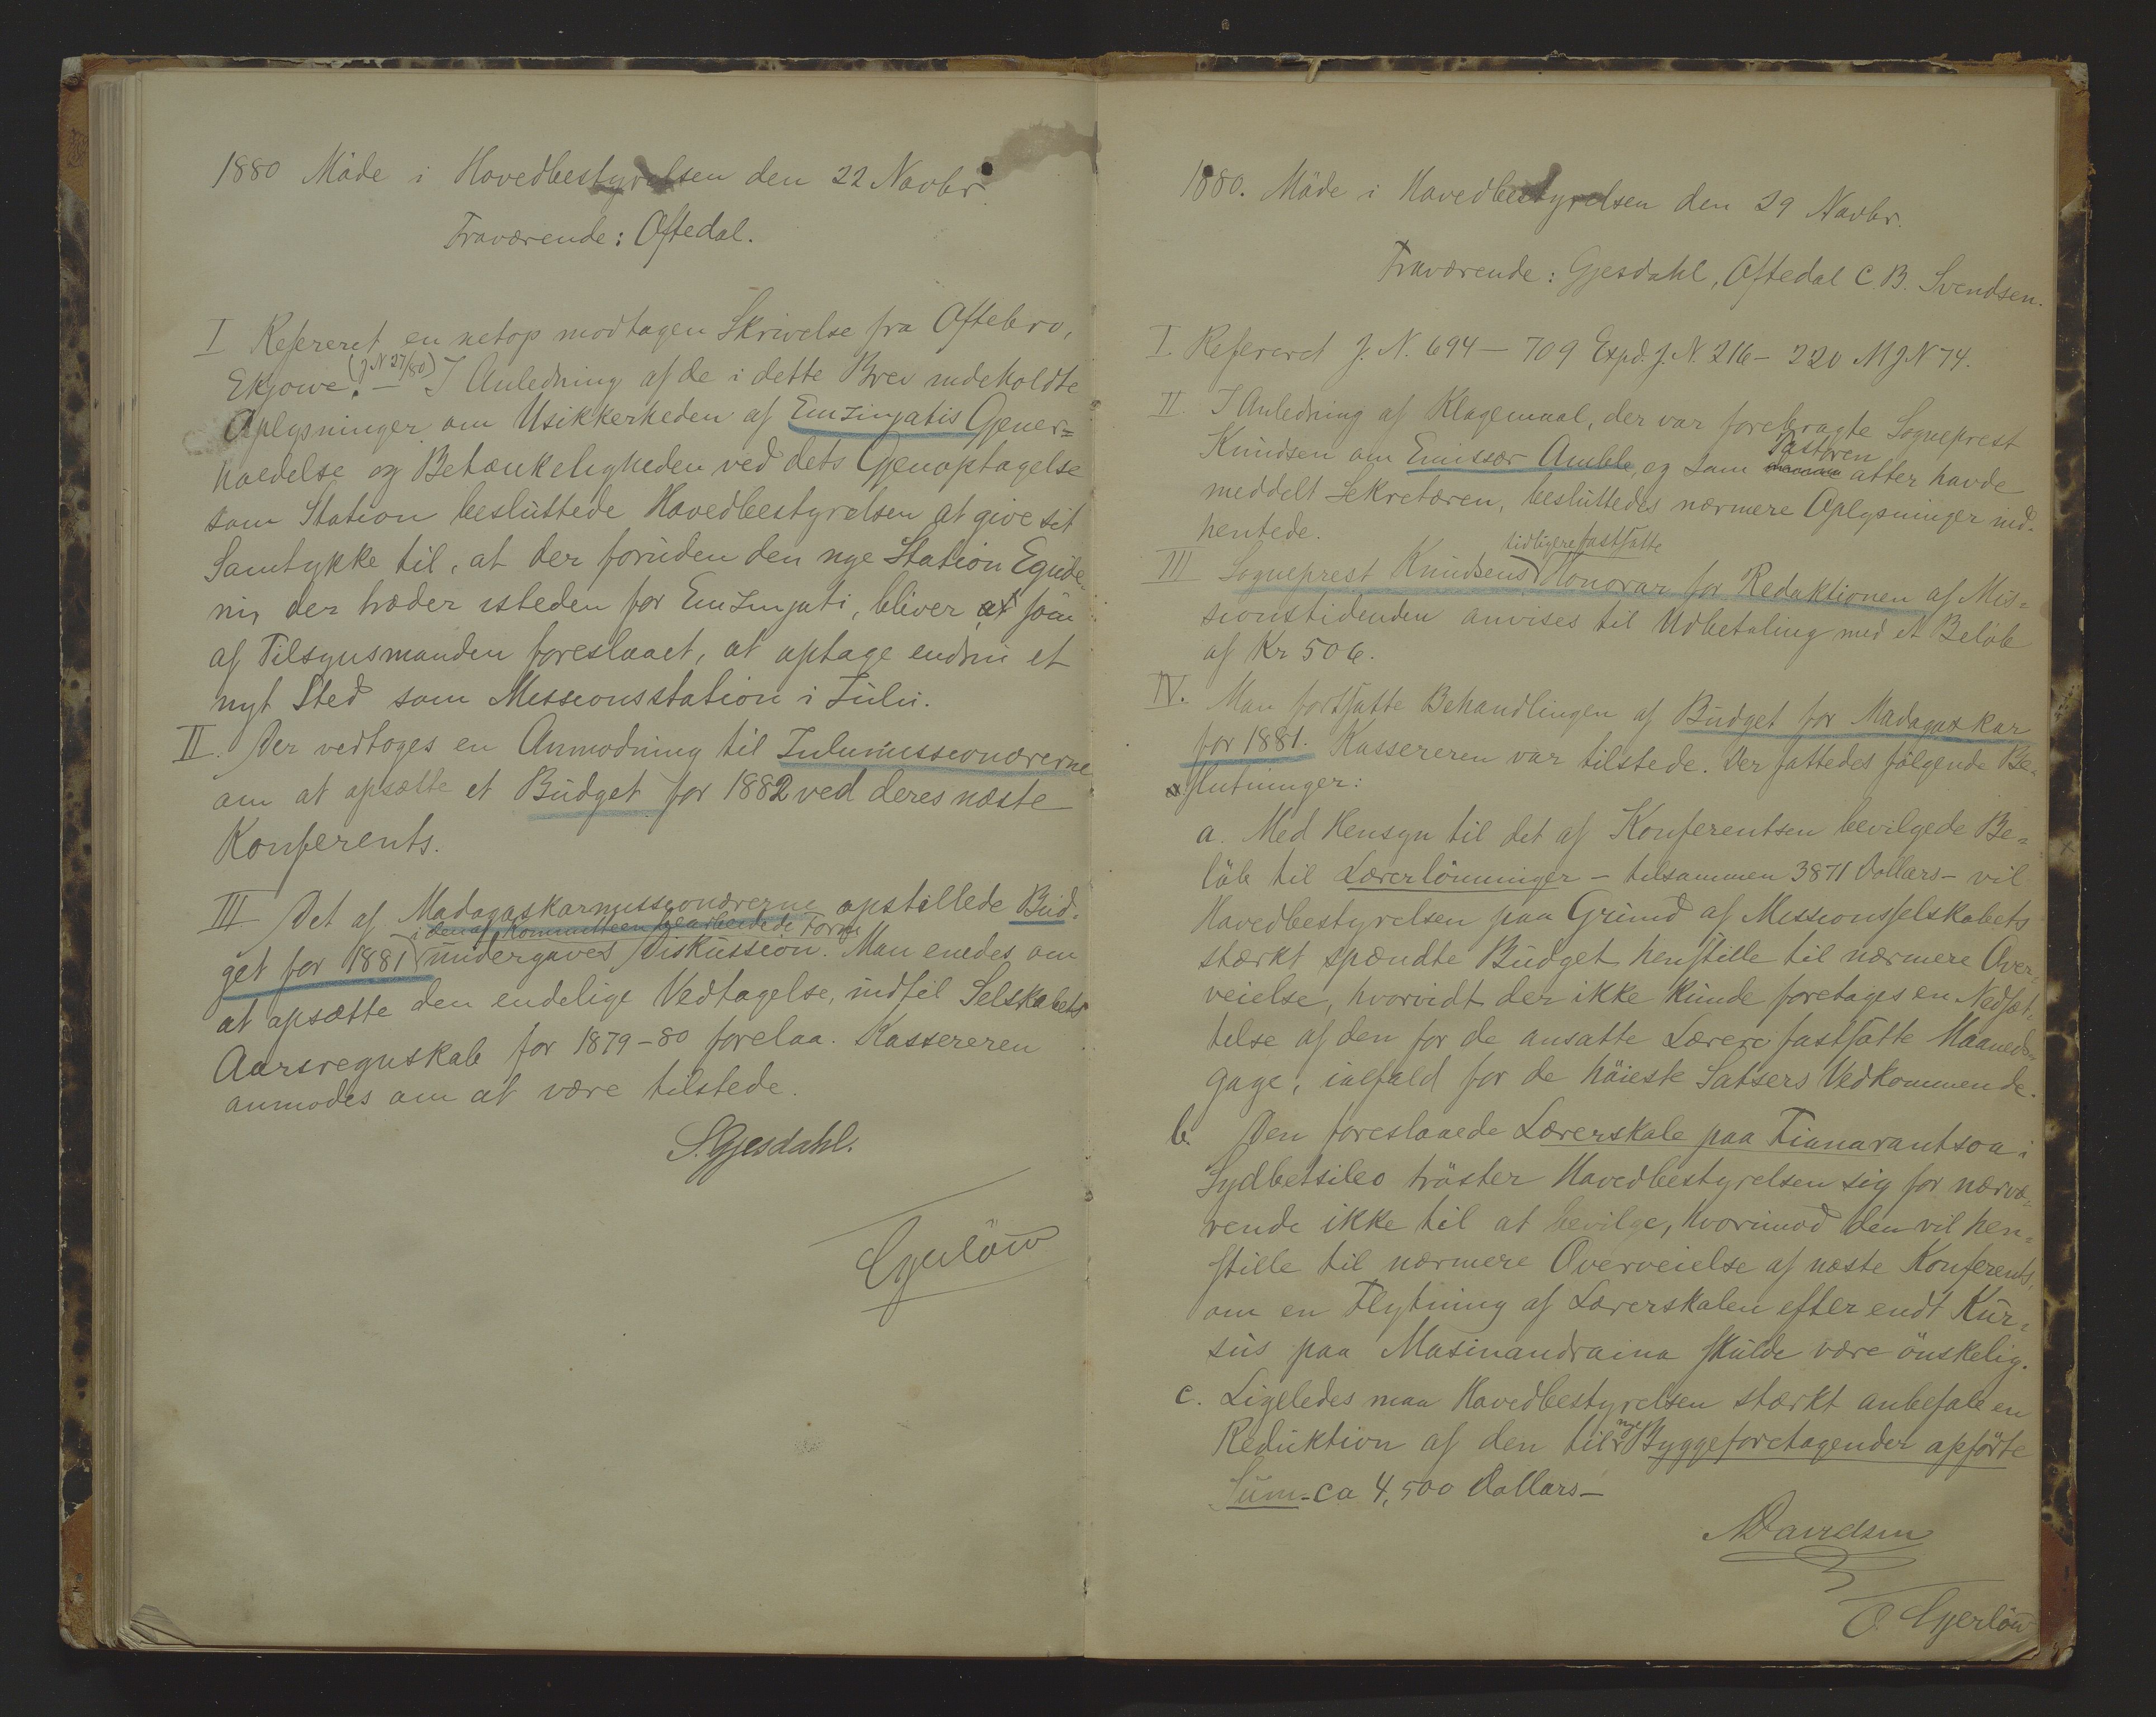 1880 Möde i Hovedbestyrelsen den 22 Novbr.
Fraværende: Oftedal.
I Refereret en netop modtagen Skrivelse fra Oftebro,
Ekjowe. (J N 27/80) – I Anledning af de i dette Brev indeholdte
Oplysninger om Usikkerheden af Emzinjatis Gjener=
hvedelse og Betænkeligheden ved dets Gjenoptagelse
som Station besluttede Hovedbestyrelsen at give sit
Samtykke til, at der foruden den nye Station Egude
ni, der træder isteden for Emzinjati, bliver at som
af Tilsynsmanden foreslaaet, at optage endnu et
nyt Sted som Missionsstation i Zulu.
II. Der vedtoges en Anmodning til Zulumissionærerne
om at opsætte et Budget for 1882 ved deres næste
Konferents.
III Det af Madagaskarmissionærerne opstillede Bud-
i den af Kommitteen bearbeidede Form
get for 1881 undergaves Diskussion. Man enedes om
at opsætte den endelige Vedtagelse, indtil Selskabets
Aarsregnskab for 1879–80 forelaa. Kassereren
anmodes om at være tilstede.
S. Gjesdahl.
Gjerlöw
1880. Möde i Hovedbestyrelsen den 29 Novbr.
Fraværende: Gjesdahl, Oftedal C. B. Svendsen.
I. Refereret J. N. 694 – 709 Expd. J. N. 216 – 220 M J N 74.
II. I Anledning af Klagemaal, der var forebragte Sogneprest
Knudsen om Emissær Amble, og som Pastoren atter havde
meddelt Sekretæren, besluttedes nærmere Oplysninger ind-
hentede.
tidligere fastsatte
III Sogneprest Knudsens Honorar for Redaktionen af Mis=
sionstidenden anvises til Udbetaling med et Belöb
af Kr 506.
IV. Man fortsatte Behandlingen af Budget for Madagaskar
for 1881. Kassereren var tilstede. Der fattedes fölgende Be-
slutninger:
a. Med Hensyn til det af Konferentsen bevilgede Be=
löb til Lærerlönninger – tilsammen 3871 Dollars – vil
Hovedbestyrelsen paa Grund af Missionsselskabets
stærkt spændte Budget henstille til nærmere Over-
veielse, hvorvidt der ikke kunde foretages en Nedsæt-
telse af den for de ansatte Lærere fastsatte Maaneds
gage, ialfald for de höieste Satsers Vedkommende.
b. Den foreslaaede Lærerskole paa Fianarantsoa i
Sydbetsileo tröster Hovedbestyrelsen sig for nærvæ=
rende ikke til at bevilge, hvorimod den vil hen=
stille til nærmere Overveielse af næste Konferents,
om en Flytning af Lærerskolen efter endt Kur=
sus paa Masinandraina skulde være önskelig.
c. Ligeledes maa Hovedbestyrelsen stærkt anbefale en
Reduktion af den til nye Byggeforetagender opförte
Sum – ca 4,500 Dollars –
N Davidsen
O. Gjerlöw